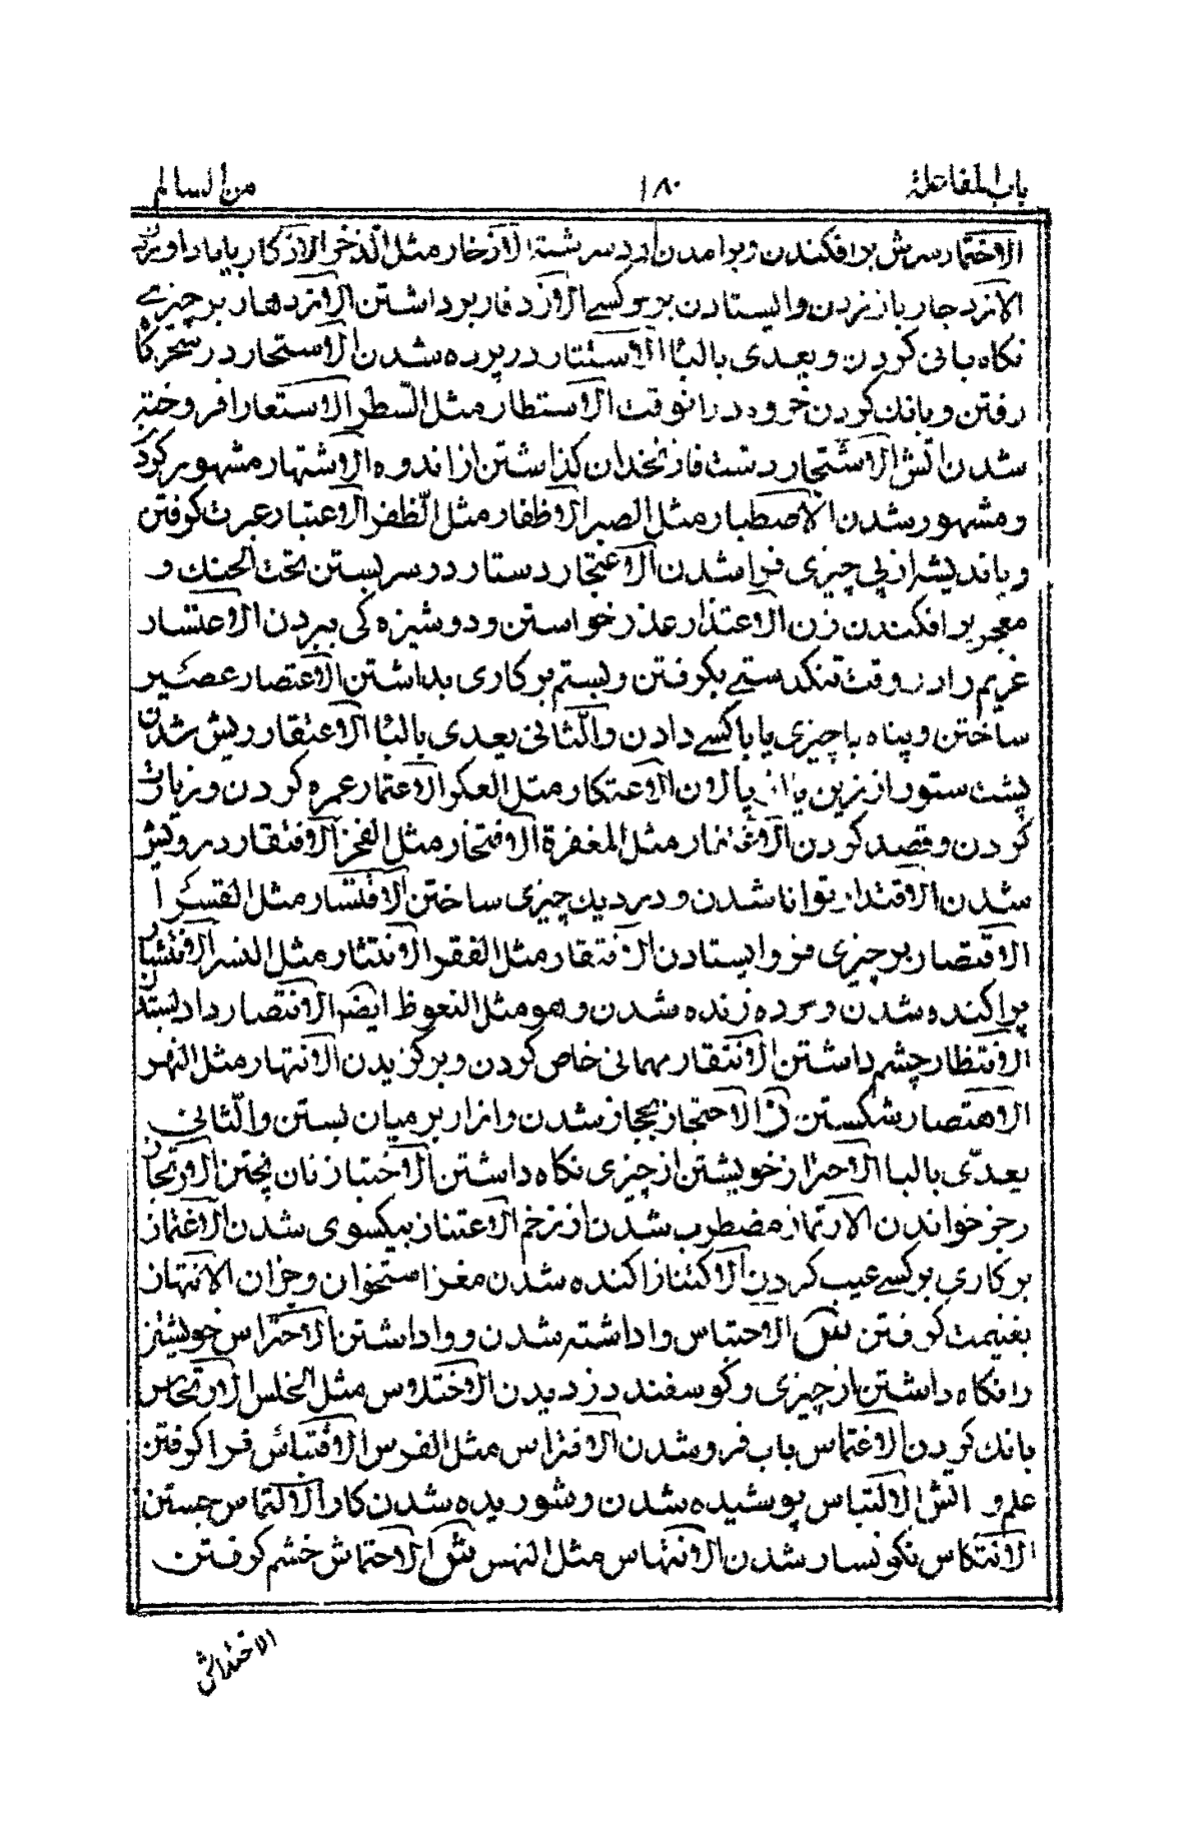 باب المفاعلة ۱۸۰ من السالم
الاختمار سرش برافکندن و برامدن ارد سرشته الاذخار مثل الذخر الاذکار بایاد اوردن
الازدجار باز زدن و ایستادن بر یوکسے الازدفار برداشتن الازدهار بر چیزے
نکاه بانی کردن و یعدی بالبا الاستتار در پرده شدن الاستحار در سحر کاه
رفتن و بانك کردن خروه درانوقت الاستطار مثل السطر الاستعار افروخته
شدن اتش الاشتجار دست فازنخدان کذاشتن از اندوه الاشتهار مشهور کردن
و مشهور شدن الاصطبار مثل الصبر الاظفار مثل الظفر الاعتبار عبرت کرفتن
و باندیشه از پی چیزی فرا شدن الاعتجار دستار در سر بستن تحت الحنك و
معجر برافکندن زن الاعتذار عذر خواستن و دوشیزه کی ببردن الاعتسار
غریم را در وقت تنکدستے بکرفتن و بستم بر کاری بداشتن الاعتصار عصیر
ساختن و پناه با چیزی یا با کسے دادن والثانی یعدی بالبا الاعتقار ریش شدن
پشت ستور از زین یا از پالان الاعتکار مثل العکر الاعتمار عمره کردن و زیارت
کردن و قصد کردن الاغتفار مثل المغفرة الافتخار مثل الفخر الافتقار درویش
شدن الاقتدار توانا شدن و در دیك چیزی ساختن الاقتسار مثل القسر
الاقتصار بر چیزی فرو ایستادن الانتقار مثل الفقر الانتثار مثل النسر الانتشار
پراکنده شدن و مرده زنده شدن و هو مثل النعوظ ایضم الانتصار داد بستدن
الانتظار چشم داشتن الانتقار مهمانی خاص کردن و برکزیدن الانتهار مثل النهر
الاهتصار شکستن ز الاحتجاز بحجاز شدن و ازار بر میان بستن والثانی
یعدی بالبا الاحتراز خویشتن از چیزی نکاه داشتن الاختباز نان پختن الارتجاز
رجز خواندن الارتماز مضطرب شدن از زخم الاعتناز بیکسوی شدن الاغتماز
بر کاری بر کسے عیب کردن الاکتناز اکنده شدن مغز استخوان و جزان الانتهاز
بغنیمت کرفتن س الاحتباس واداشته شدن و واداشتن الاحتراس خویشتن
را نکاه داشتن از چیزی و کوسفند دزدیدن الاختلاس مثل الخلس الارتجاس
بانك کردن الاغتماس باب فرو شدن الافتراس مثل الفرس الاقتباس فرا کرفتن
علم و اتش الالتباس پوشیده شدن و شوریده شدن کار الالتماس جستن
الانتکاس نکونسار شدن الانتهاس مثل النهس ش الاحتماش خشم کرفتن
الاختداش